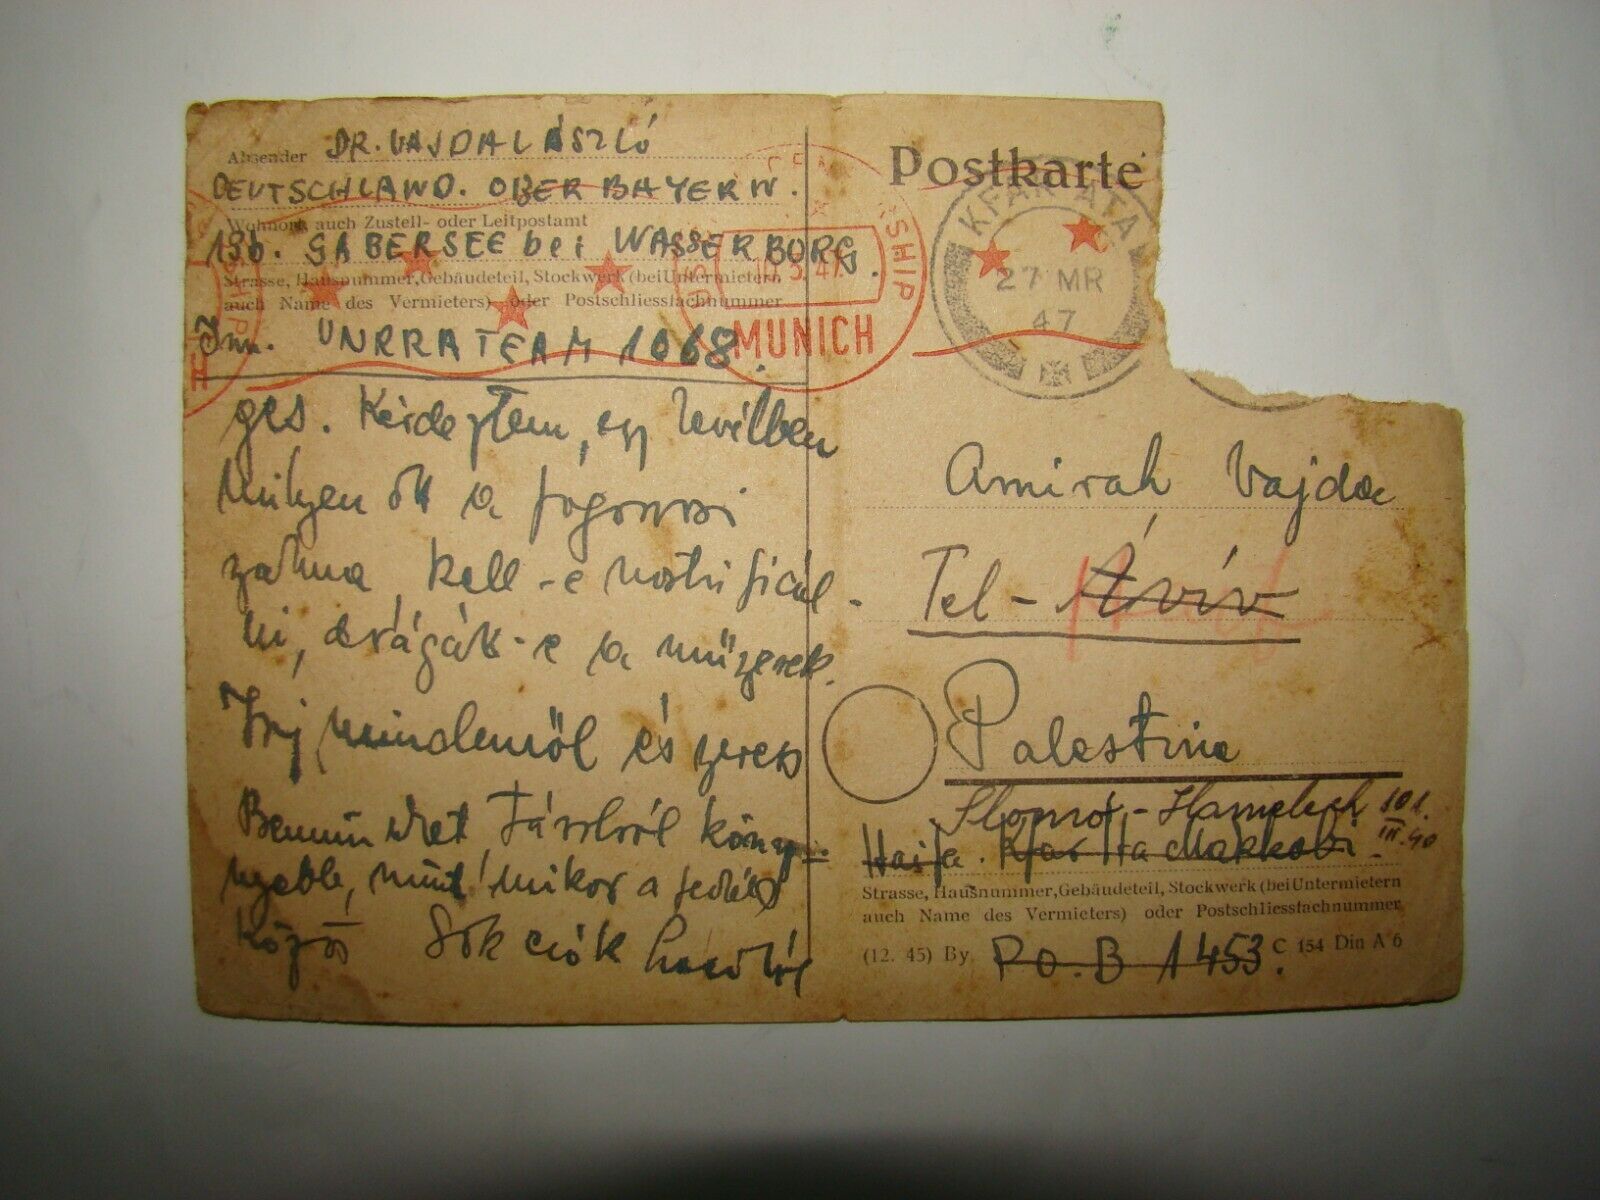 Absender DR. VAJDA LÁSZLÓ
DEUTSCHLAND. OBER BAYERN.
Wohnort, auch Zustell- oder Leitpostamt
13b. GABERSEE bei WASSERBURG.
Strasse, Hausnummer, Gebäudeteil, Stockwerk (bei Untermietern
auch Name des Vermieters) oder Postschliessfachnummer
Inn. UNRRA TEAM 1068.
ges. Kérdeztem, egy levélben
milyen ott a fogorvosi
szakma, kell-e nostrificál-
ni, drágák-e a műszerek.
Írj mindenről és
könny-
, mint mikor a
közös Sok csók
SHIP
MUNICH
Postkarte
KFAR ATA
27 MR
47
Amirah Vajda
Tel-Áviv
Palestine
Shlomo-Hamelech 101.
III. 40
Haifa. Kfar Ha Makkabi
Strasse, Hausnummer, Gebäudeteil, Stockwerk (bei Untermietern
auch Name des Vermieters) oder Postschliessfachnummer
(12. 45) By. P.O.B 1453. C 154 Din A 6